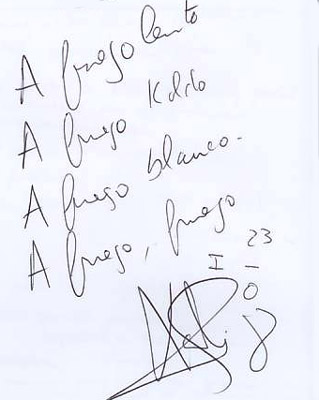 A fuego lento
A fuego Kddo
A fuego blanco.
A fuego, fuego
23
I -
08